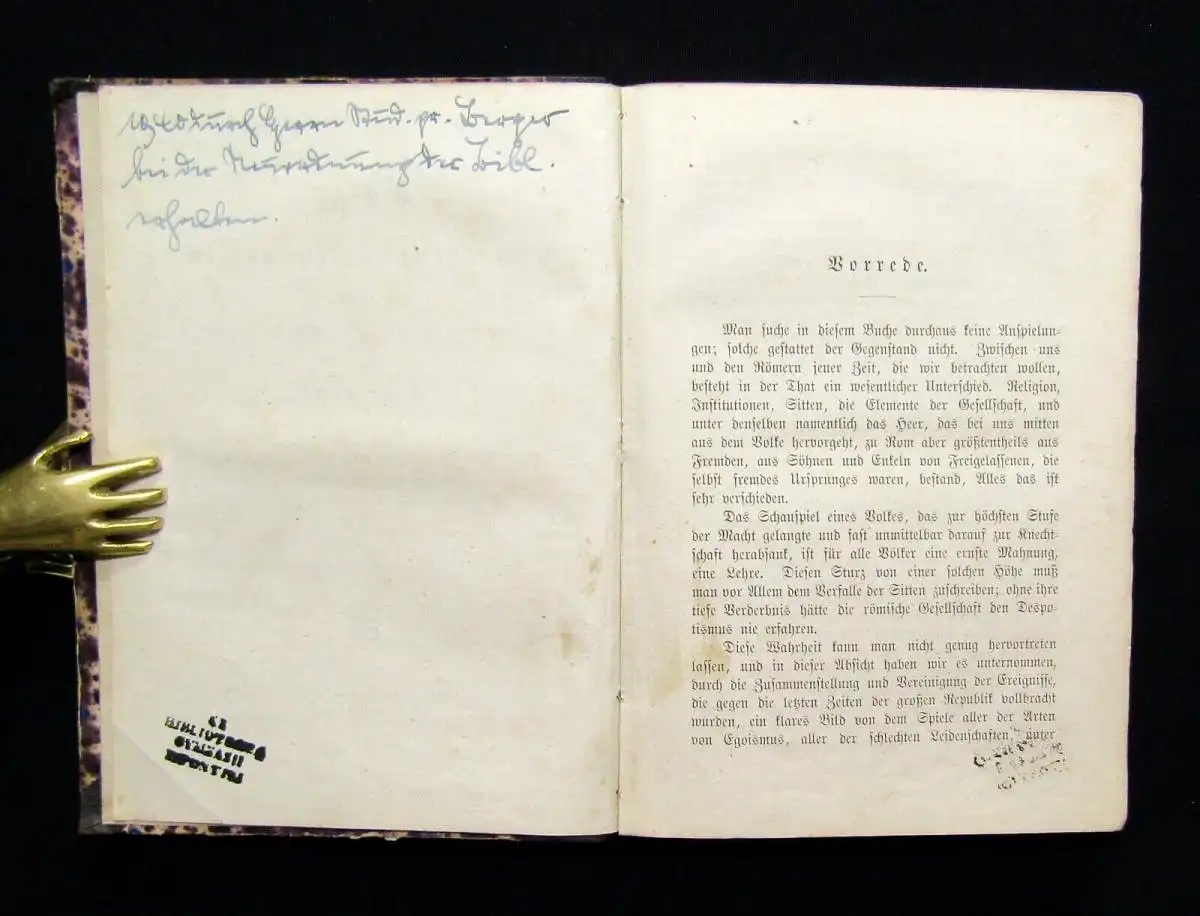 1940 durch Herrn Stud. pr. Berger
bei der Neuordnung der Bibl.
erhalten.
BIBLIOTHECA
GYMNASII
BIPONTINI
Vorrede.
Man suche in diesem Buche durchaus keine Anspielun-
gen; solche gestattet der Gegenstand nicht. Zwischen uns
und den Römern jener Zeit, die wir betrachten wollen,
besteht in der That ein wesentlicher Unterschied. Religion,
Institutionen, Sitten, die Elemente der Gesellschaft, und
unter denselben namentlich das Heer, das bei uns mitten
aus dem Volke hervorgeht, zu Rom aber größtentheils aus
Fremden, aus Söhnen und Enkeln von Freigelassenen, die
selbst fremdes Ursprunges waren, bestand, Alles das ist
sehr verschieden.
Das Schauspiel eines Volkes, das zur höchsten Stufe
der Macht gelangte und fast unmittelbar darauf zur Knecht-
schaft herabsank, ist für alle Völker eine ernste Mahnung,
eine Lehre. Diesen Sturz von einer solchen Höhe muß
man vor Allem dem Verfalle der Sitten zuschreiben; ohne ihre
tiefe Verderbnis hätte die römische Gesellschaft den Despo-
tismus nie erfahren.
Diese Wahrheit kann man nicht genug hervortreten
lassen, und in dieser Absicht haben wir es unternommen,
durch die Zusammenstellung und Vereinigung der Ereignisse,
die gegen die letzten Zeiten der großen Republik vollbracht
wurden, ein klares Bild von dem Spiele aller der Arten
von Egoismus, aller der schlechten Leidenschaften, unter